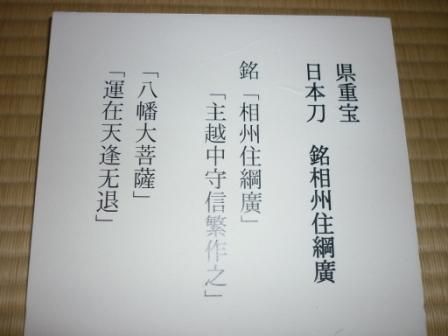 県重宝
日本刀　銘相州住綱廣
銘「相州住綱廣」
「主越中守信繁作之」
「八幡大菩薩」
「運在天逢无退」